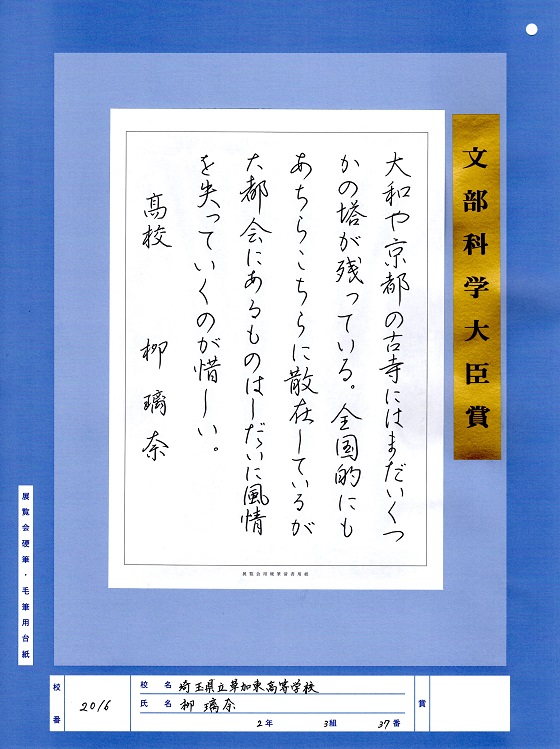 文部科学大臣賞
大和や京都の古寺にはまだいくつ
かの塔が残っている。全国的にも
あちらこちらに散在しているが
大都会にあるものはしだいに風情
を失っていくのが惜しい。
高校 柳 璃奈
展覧会用硬筆清書用紙
展覧会硬筆・毛筆用台紙
校番 2016
校名 埼玉県立草加東高等学校
氏名 柳 璃奈
2年 3組 37番
賞